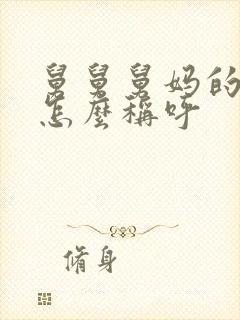 舅舅舅妈的
怎麼稱呼
脩身